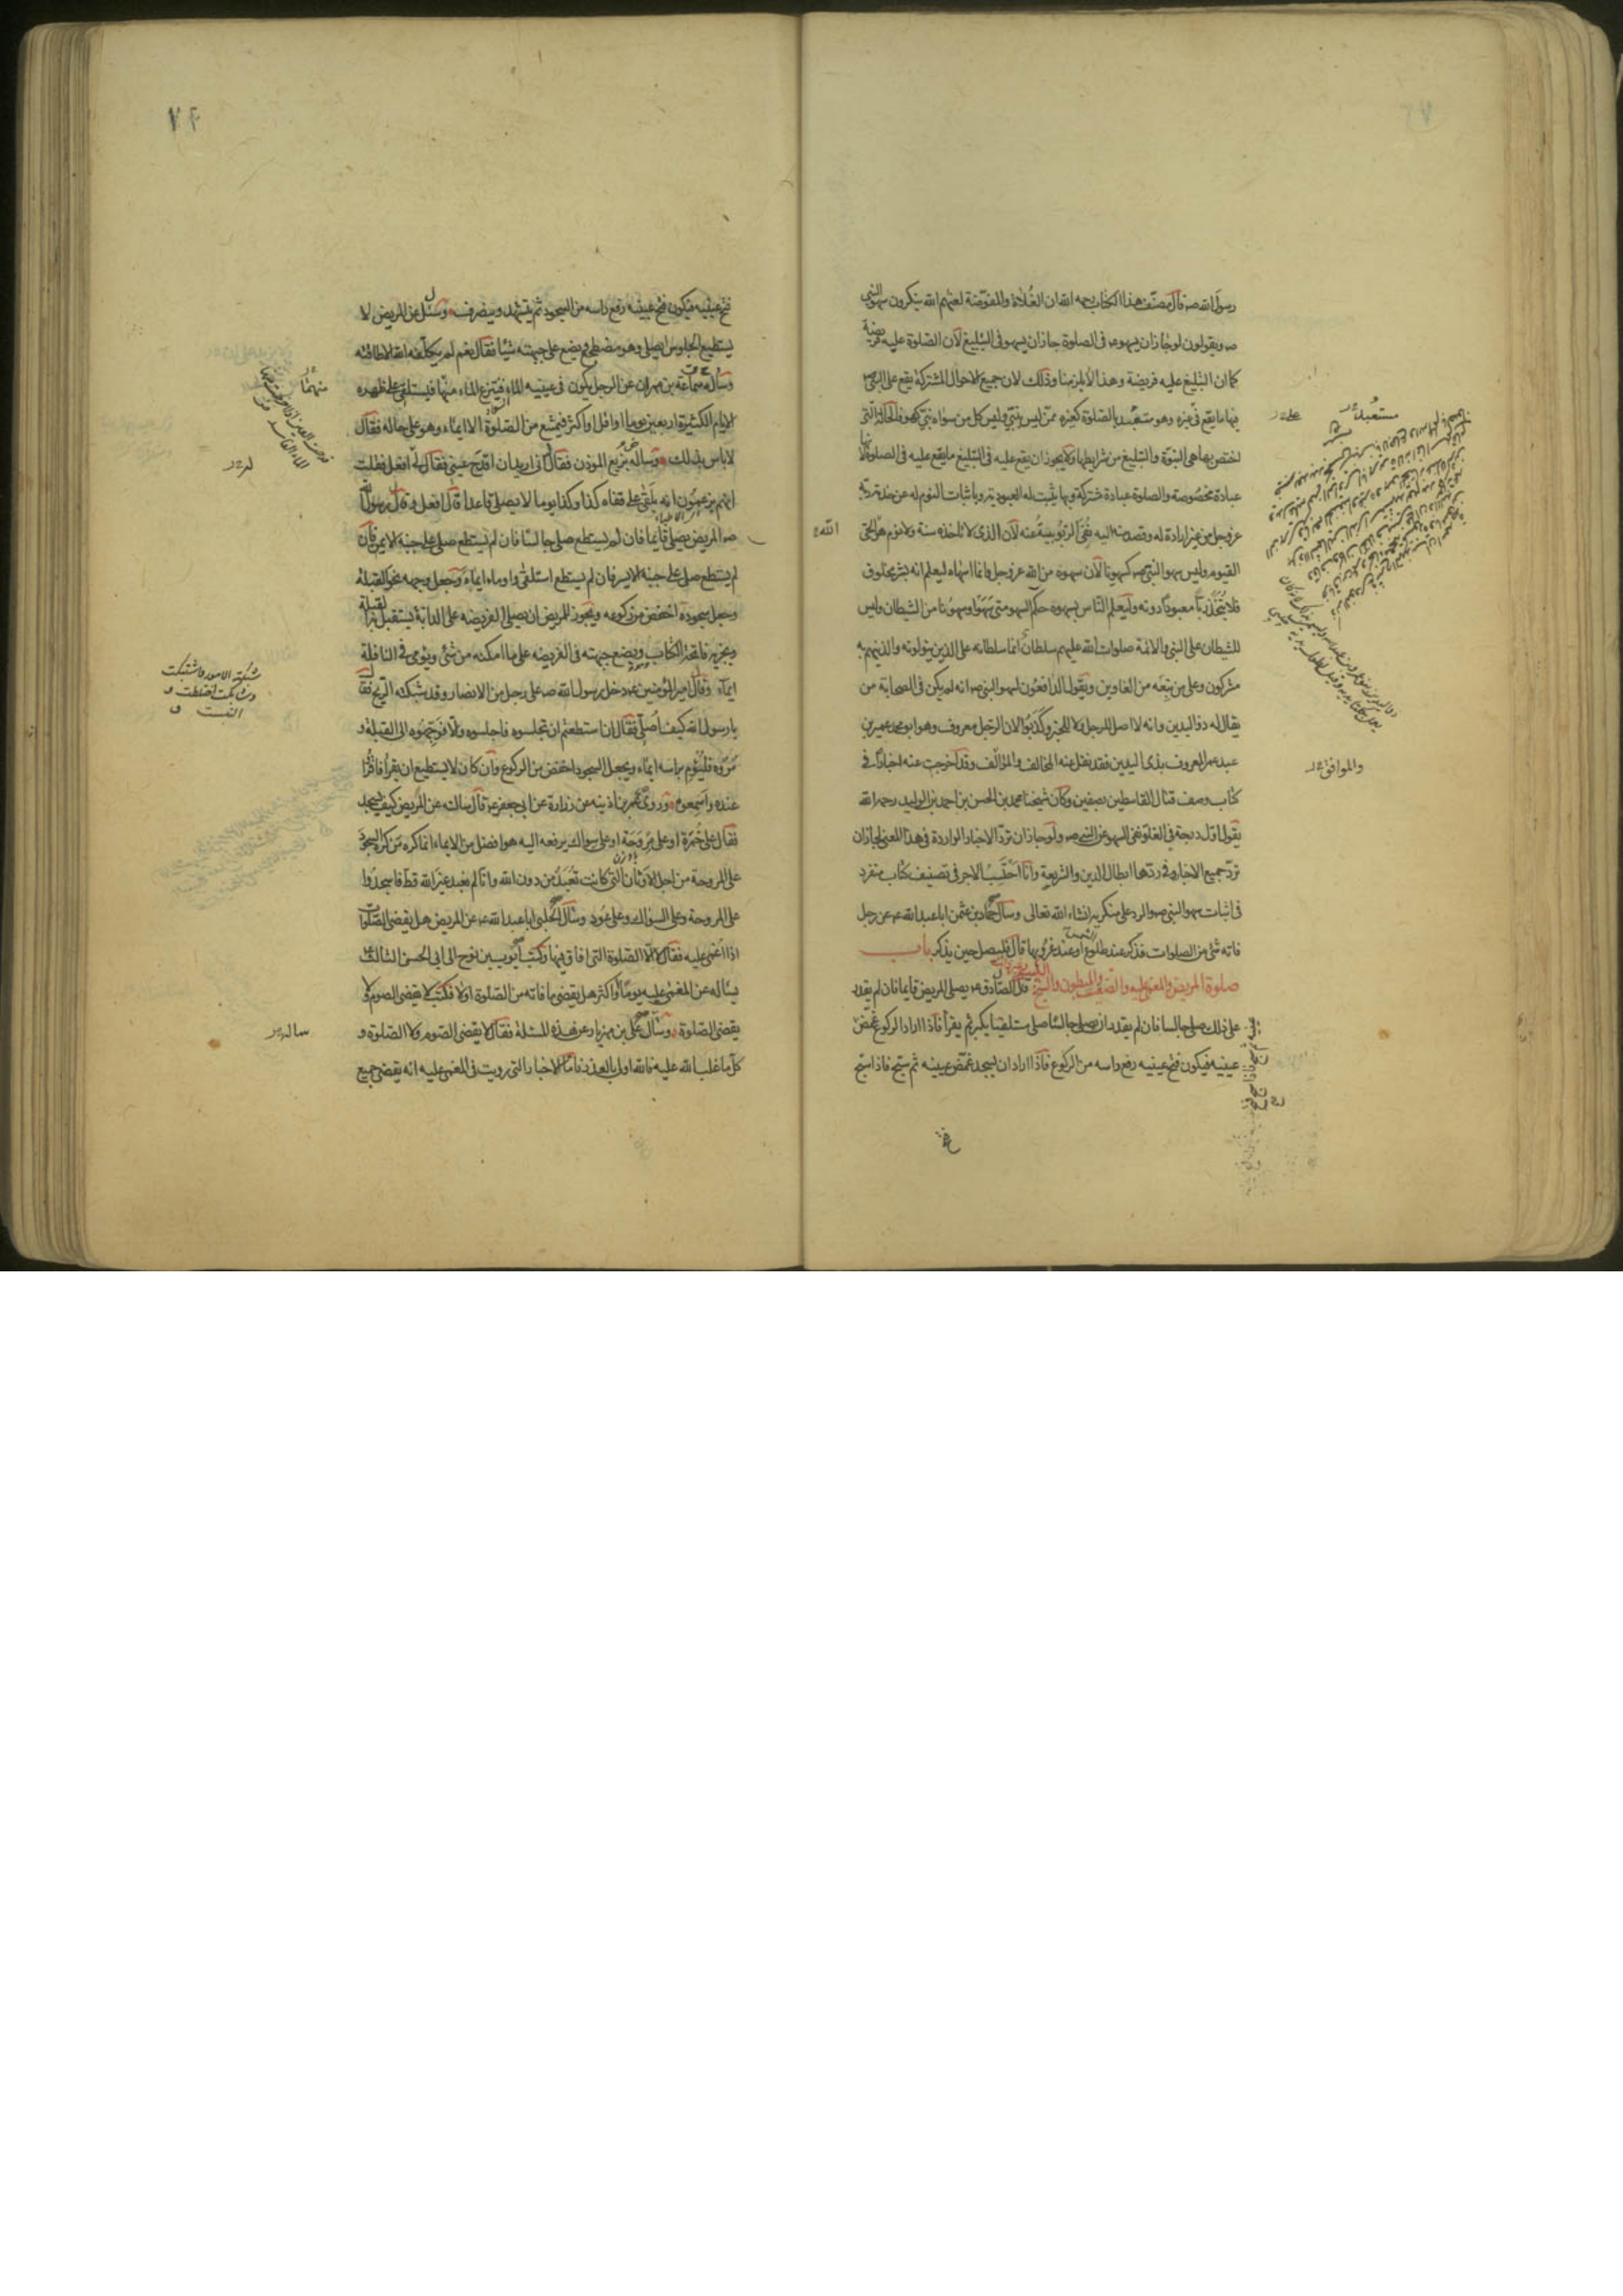 رسول الله صه قال مصنف هذا الكتاب رحمه الله ان الغُلاة والمفوّضة لعنهم الله ينكرون سهو النبى
صه ويقولون لو جاز ان يسهوء فى الصلوة جاز ان يسهو فى التبليغ لان الصلوة عليه فريضة
كما ان التبليغ عليه فريضة وهذا لا يلزمنا وذلك لان جميع الاحوال المشتركة يقع على النبى صه
فيها ما يقع فى غيره وهو متعبد بالصلوة كغيره ممّن ليس بنبيّ وليس كل من سواه نبيّ كهو فالحالة التى
اختص بها هى النبوة والتبليغ من شرايطها ولا يجوز ان يقع عليه فى التبليغ ما يقع عليه فى الصلوة لانها
عبادة مخصوصة والصلوة عبادة مشتركة وبها يثبت له العبودية وباثبات النوم له عن خدمة ربه
عزوجل من غير ارادة له وقصد منه اليه نفى الربوبية عنه لان الذى لا تاخذه سنة ولا نوم هو الحى
القيوم وليس سهو النبى صه كسهونا لان سهوه من الله عزوجل وانما اسهاه ليعلم انه بشر مخلوق
فلا يتّخذ ربّا معبودا دونه وليعلم النّاس بسهوه حكم السهو متى سَهَوا وسهونا من الشيطان وليس
للشيطان على النبى والائمة صلوات الله عليهم سلطان انما سلطانه على الذين يتولونه والذينهم به
مشركون وعلى من تبعه من الغاوين ويقول الدافعون لسهو النبى صه انه لم يكن فى الصحابة من
يقال له ذو اليدين وانه لا اصل للرجل ولا للخبر وكذبوا لان الرجل معروف وهو ابو محمد عمير بن
عبد عمر المعروف بذى اليدين فقد نقل عنه المخالف والمؤالف وقد اخرجت عنه اخبارا فى
كتاب وصف قتال القاسطين بصفين وكان شيخنا محمد بن الحسن بن احمد بن الوليد رحمه الله
يقول اول درجة فى الغلو نفى السهو عن النبى صه ولو جاز ان تردّ الاخبار الواردة فى هذا المعنى لجاز ان
تردّ جميع الاخبار وفى ردّها ابطال الدين والشريعة وانا احتسب الاجر فى تصنيف كتاب منفرد
فى اثبات سهو النبى صه والرد على منكريه انشاء الله تعالى وسأل حماد بن عثمن ابا عبد الله عه عن رجل
فاته شئ من الصلوات فذكر عند طلوع الشمس او عند غروبها قال فليصل حين يذكر باب
صلوة المريض والمغمى عليه والضعيف والمبطون والشيخ الكبير وغير ذلك قال الصّادق عه يصلى المريض قايما فان لم يقدر
على ذلك صلى جالسا فان لم يقدر ان يصلى جالسًا صلى مستلقيا يكبر ثم يقرأ فاذا اراد الركوع غمّض
عينيه فيكون فتح عينيه رفع راسه من الركوع فاذا اراد ان يسجد غمّض عينيه ثم سبّح فاذا سبّح
الله
والموافق
فتح
فتح عينيه فيكون فتح عينيه رفع راسه من السجود ثم يتشهد وينصرف وسئل عن المريض لا
يستطيع الجلوس ايصلى وهو مضطجع ويضع على جبهته شيئا فقال نعم لم يكلّفه الله الا طاقته
وسأله سماعة بن مهران عن الرجل يكون فى عينيه الماء فينتزع الماء منها فيستلقى على ظهره
الايام الكثيرة اربعين يوما او اقل او اكثر فيمتنع من الصلوة الا ايماء وهو على حاله فقال
لا باس بذلك وسأله بزيع الموذن فقال انى اريد ان اقدح عينى فقال لى افعل فقلت
انهم يزعمون انه يلقى على قفاه كذا وكذا يوما لا يصلى قاعدا قال افعل وقال رسول الله
صه المريض يصلى قايما فان لم يستطع صلى جالسًا فان لم يستطع صلى على جنبه الايمن فان
لم يستطع صلى على جنبه الايسر فان لم يستطع استلقى واوماء ايماءً وجعل وجهه نحو القبلة
وجعل سجوده اخفض من ركوعه ويجوز للمريض ان يصلى الفريضه على الدابة يستقبل بها القبلة
ويجزيه فاتحة الكتاب ويضع جبهته فى الفريضه على ما امكنه من شئ ويومى فى النافلة
ايماء وقال امير المؤمنين عه دخل رسول الله صه على رجل من الانصار وقد شبكته الريح فقال
يا رسول الله كيف اصلّى فقال ان استطعتم ان تجلسوه فاجلسوه والا فوجّهوه الى القبلة و
مروه فليؤم براسه ايماء ويجعل السجود اخفض من الركوع وان كان لا يستطيع ان يقرأ فاقرؤا
عنده واسمعوه وروى عمر بن اذينه عن زرارة عن ابى جعفر عه قال سالته عن المريض كيف يسجد
فقال على خمرة او على مروحة او على سواك يرفعه اليه هو افضل من الايماء انما كره من كره السجود
على المروحة من اجل الاوثان التى كانت تُعبَدُ من دون الله وانا لم نعبد غير الله قط فاسجدوا
على المروحة وعلى السواك وعلى عُود وسأل الحلبى ابا عبد الله عه عن المريض هل يقضى الصّلوات
اذا اغمى عليه فقال لا الا الصّلوة التى افاق فيها وكتب ايّوب بن نوح الى ابى الحسن الثالث عه
يسأله عن المغمى عليه يومًا او اكثر هل يقضى ما فاته من الصّلوة او لا فكتب لا يقضى الصوم ولا
يقضى الصّلوة وسأل على بن مهزيار عن هذه المسئلة فقال لا يقضى الصوم ولا الصّلوة و
كل ما غلب الله عليه فالله اولى بالعذر فاما الاخبار التى رويت فى المغمى عليه انه يقضى جميع
شبكت الامور فاشتبكت
وتشابكت اختلطت و
التبست ق
ساله